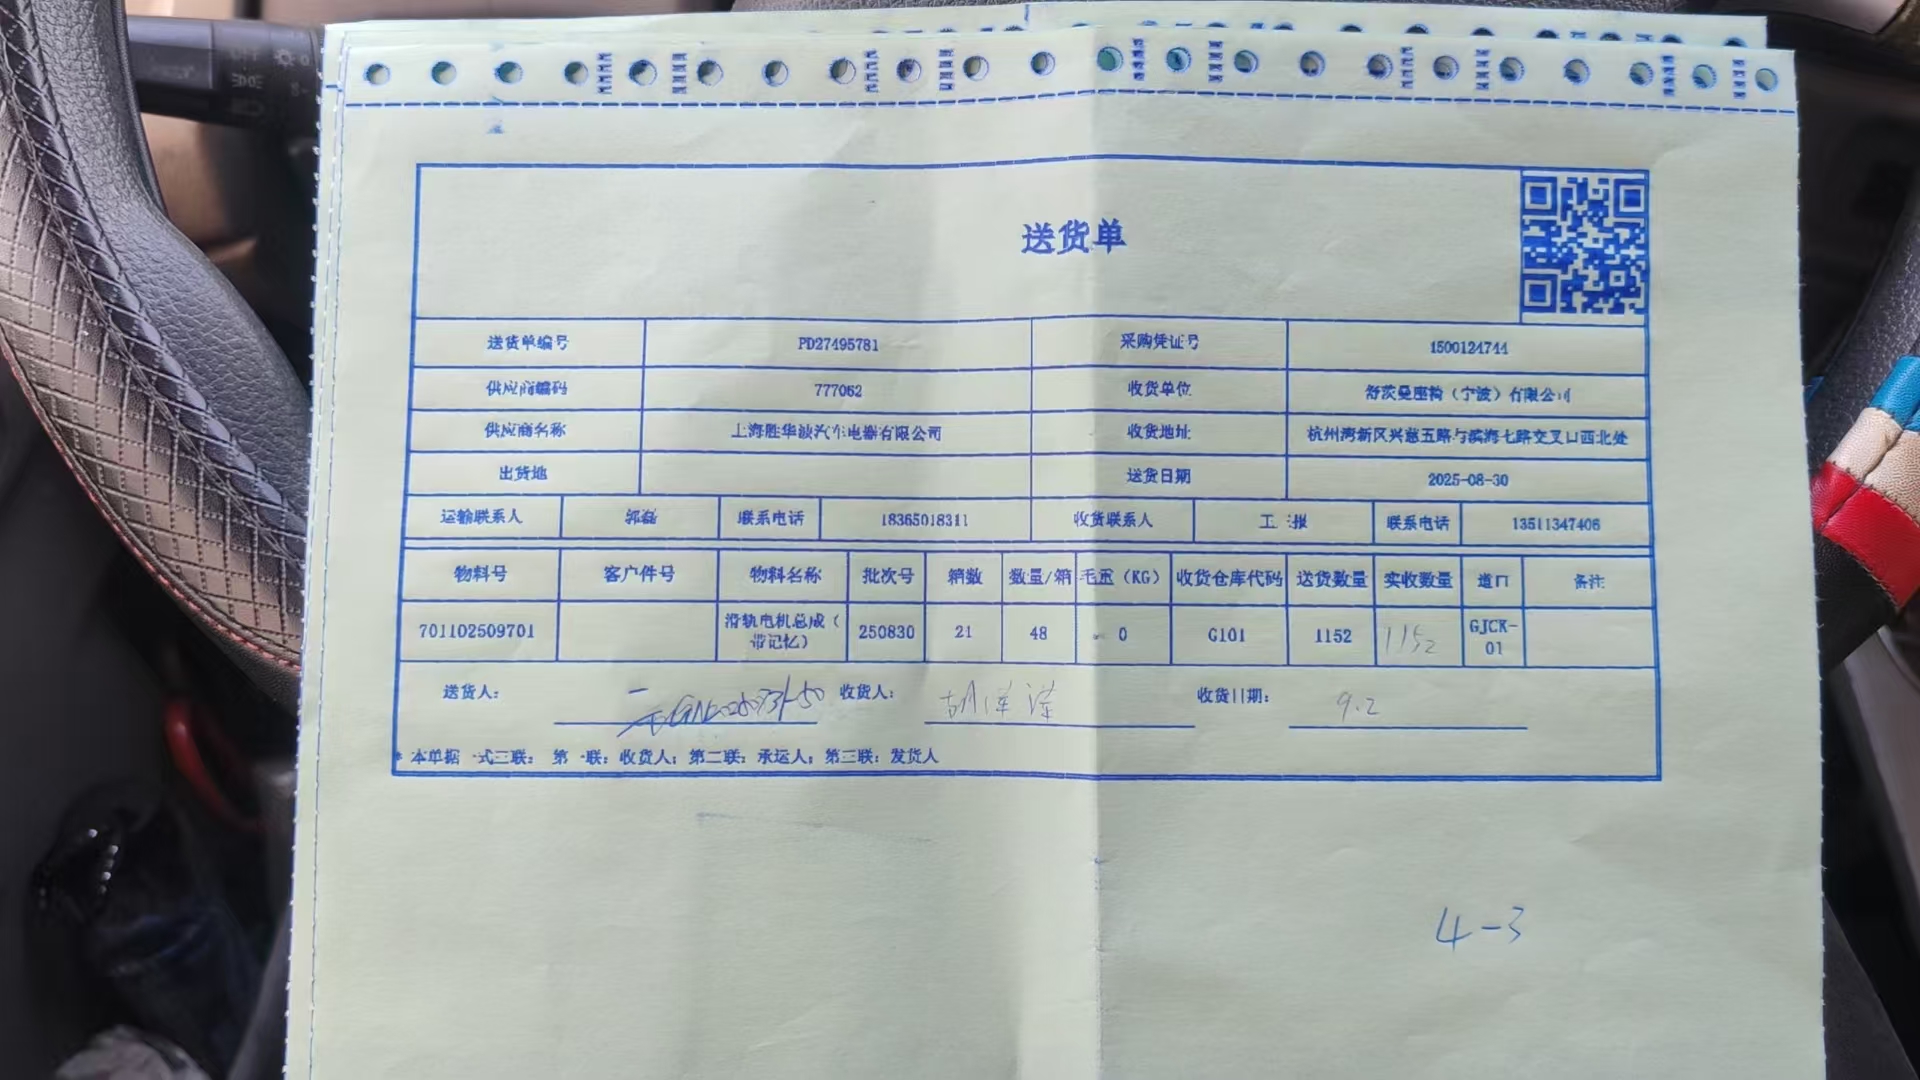 送货单
送货单编号 PD27495781 采购凭证号 1500124744
供应商编码 777062 收货单位 舒茨曼座椅（宁波）有限公司
供应商名称 上海胜华波汽车电器有限公司 收货地址 杭州湾新区兴慈五路与滨海七路交叉口西北处
出货地 送货日期 2025-08-30
运输联系人 郭磊 联系电话 18365018311 收货联系人 联系电话 13511347406
物料号 客户件号 物料名称 批次号 箱数 数量/箱 毛重（KG） 收货仓库代码 送货数量 实收数量 道口 备注
701102509701 滑轨电机总成（带记忆） 250830 21 48 0 G101 1152 1152 GJCK-01
送货人： 收货人： 胡 收货日期： 9.2
* 本单据一式三联： 第一联：收货人；第二联：承运人；第三联：发货人
4-3